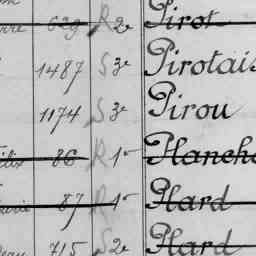 629 R 2e Pirot
1487 S 3e Pirotais
1174 S 3e Pirou
86 R 1r Planche
87 R 1r Plard
715 S 2e Plard